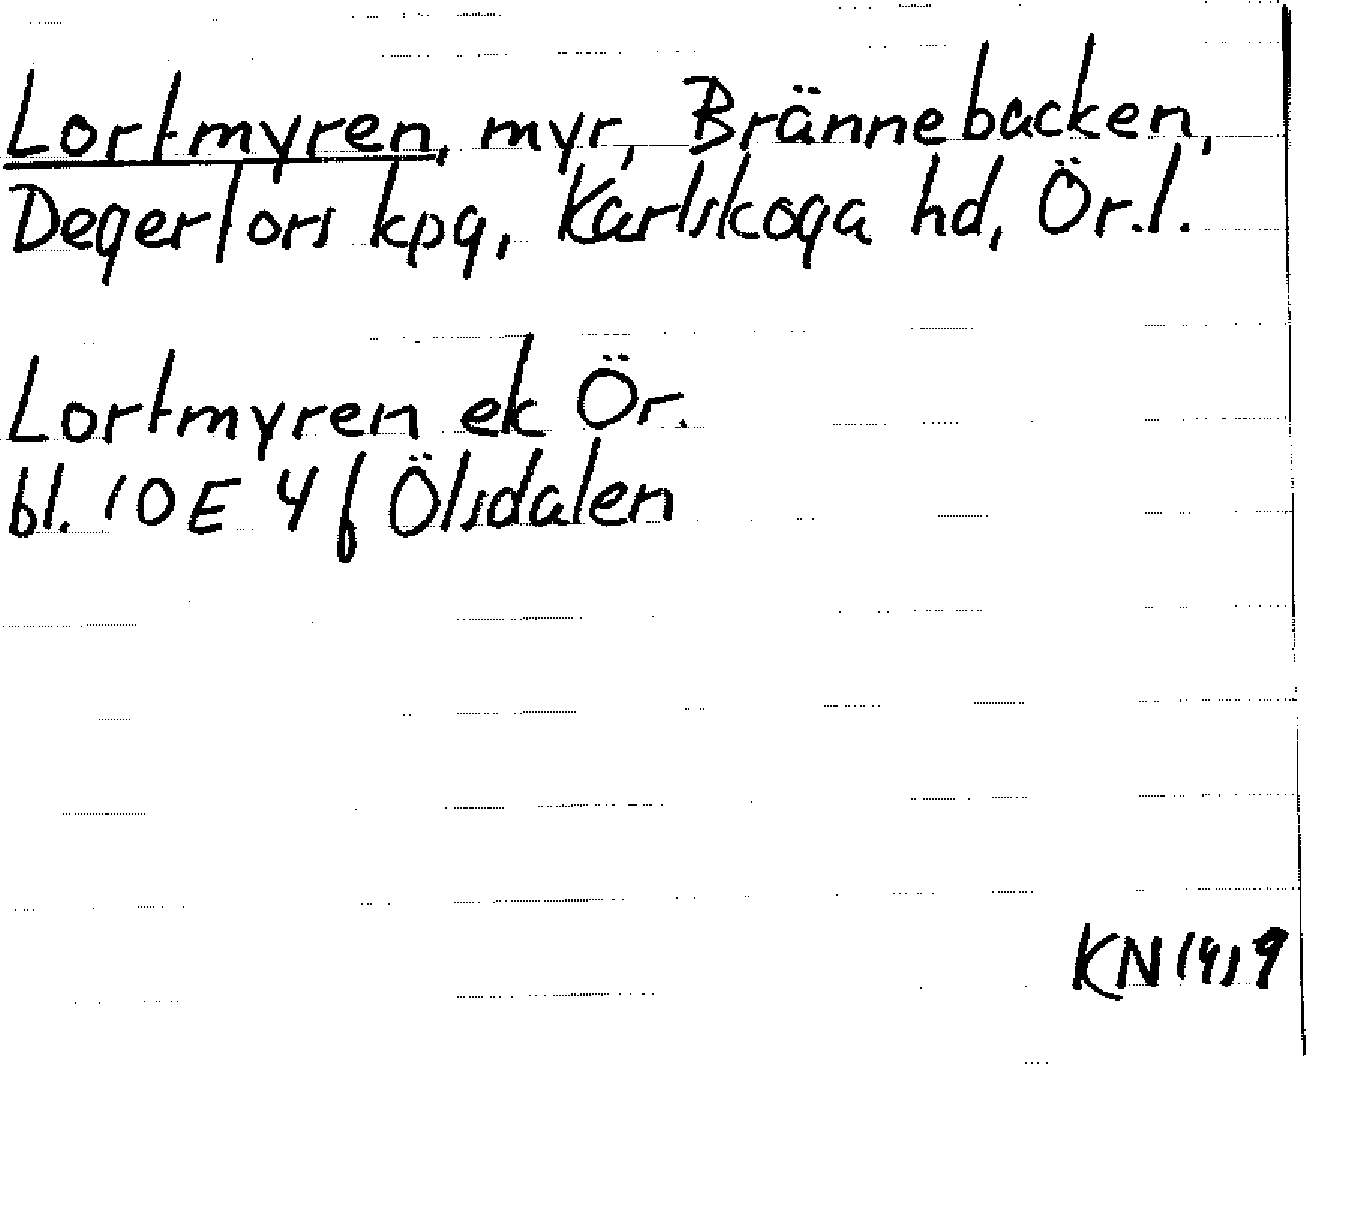 Lortmyren, myr, Brännebacken,
Degerfors kpg, Karlskoga hd, Ör.l.
Lortmyren ek Ör.
bl. 10E 4f Ölsdalen
KN 1419